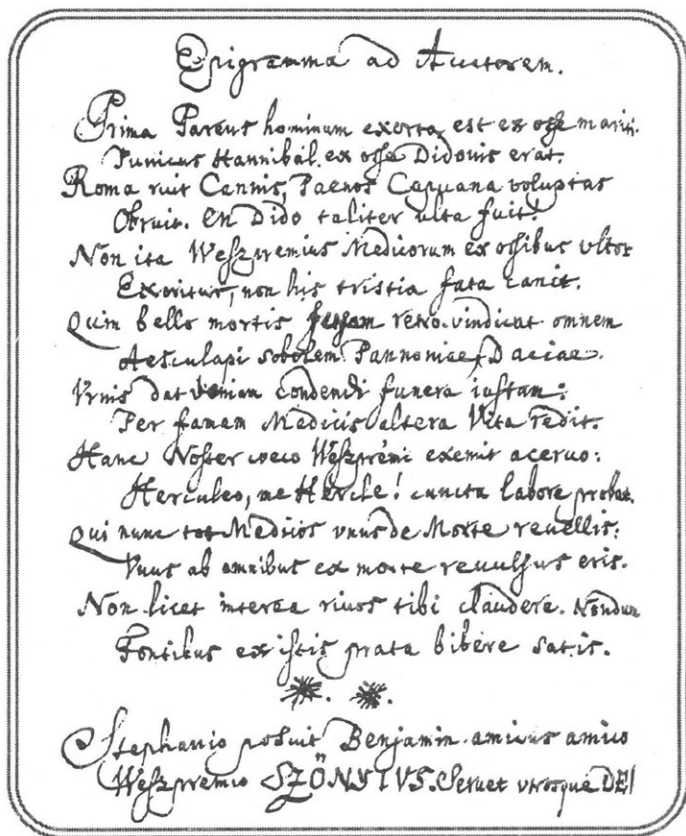 Epigramma ad Auctorem.
Prima Parens hominum exorta est ex osse mariti.
Punicus Hannibal ex osse Didonis erat.
Roma ruit Cannis, Paenos Capuana voluptas
Obruit. En Dido taliter ulta fuit!
Non ita Weszpremius Medicorum ex ossibus vltor
Exoritur, non his tristia fata canit.
Quin bello mortis retro vindicat omnem
Aesculapi sobolem Pannoniae, Daciae.
Vrnis dat veniam condendi funera iustam:
Per famam Medicis altera Vita redit.
Hanc Noster coeco Weszprémi exemit aceruo:
Herculeo, me Hercle! cuncta labore probat.
Qui nunc tot Medicos vnus de Morte reuellis:
Vnus ab omnibus ex morte reuulsus eris.
Non licet interea riuos tibi claudere. Nondum
Fontibus ex istis prata bibere satis.
Stephano posuit Benjamin amicus amico
Weszpremio SZŐNYIVS. Seruet vtrosque DE